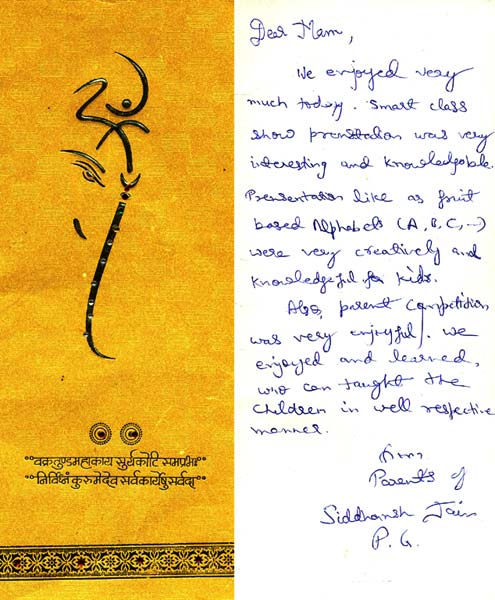 वक्रतुण्डमहाकाय सुर्यकोटि समप्रभः
निर्विघ्नं कुरुमेदेव सर्वकार्येषुसर्वदा
Dear Mam,
We enjoyed very
much today. Smart class
show prensttation was very
interesting and knowledgeable.
Presentation like as fruit
based Alphabets (A, B, C, ---)
were very creatively and
knowledgeful for kids.
Also, parent Competition
was very enjoyful. We
enjoyed and learned,
who can taught the
children in well respective
manner.
from
Parents of
Siddhansh Jain
P. G.